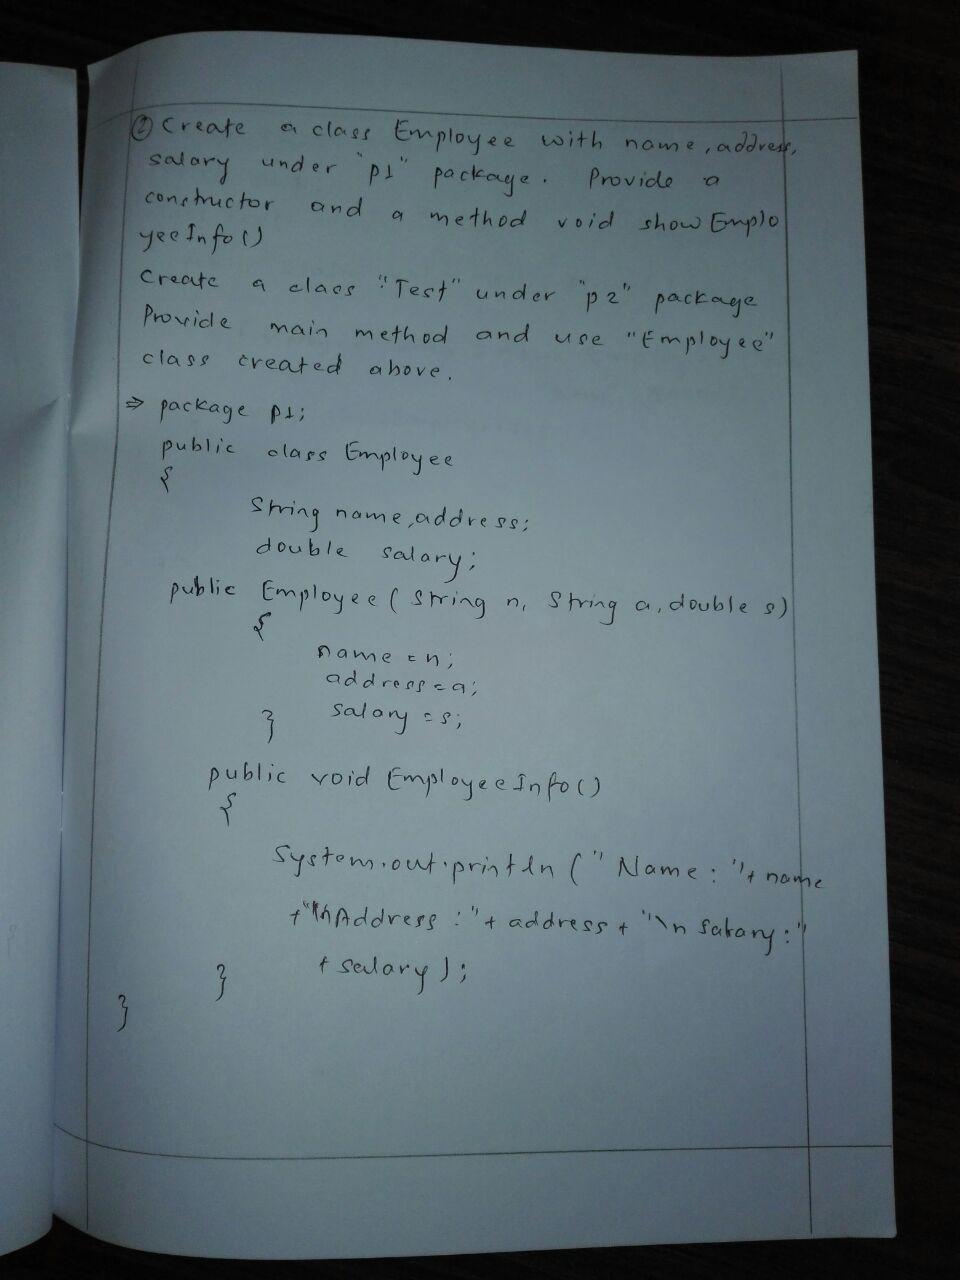 ② Create a class Employee with name, address,
salary under "p1" package. Provide a
constructor and a method void show Emplo
yeeInfo()
Create a class "Test" under "p2" package
Provide main method and use "Employee"
class created above.
⇒ package p1;
public class Employee
{
String name, address;
double salary;
public Employee ( String n, String a, double s)
{
name = n;
address = a;
salary = s;
}
public void EmployeeInfo()
{
System.out.println (" Name : "+ name
+"\nAddress :"+ address + "\n Salary :"
+ salary );
}
}